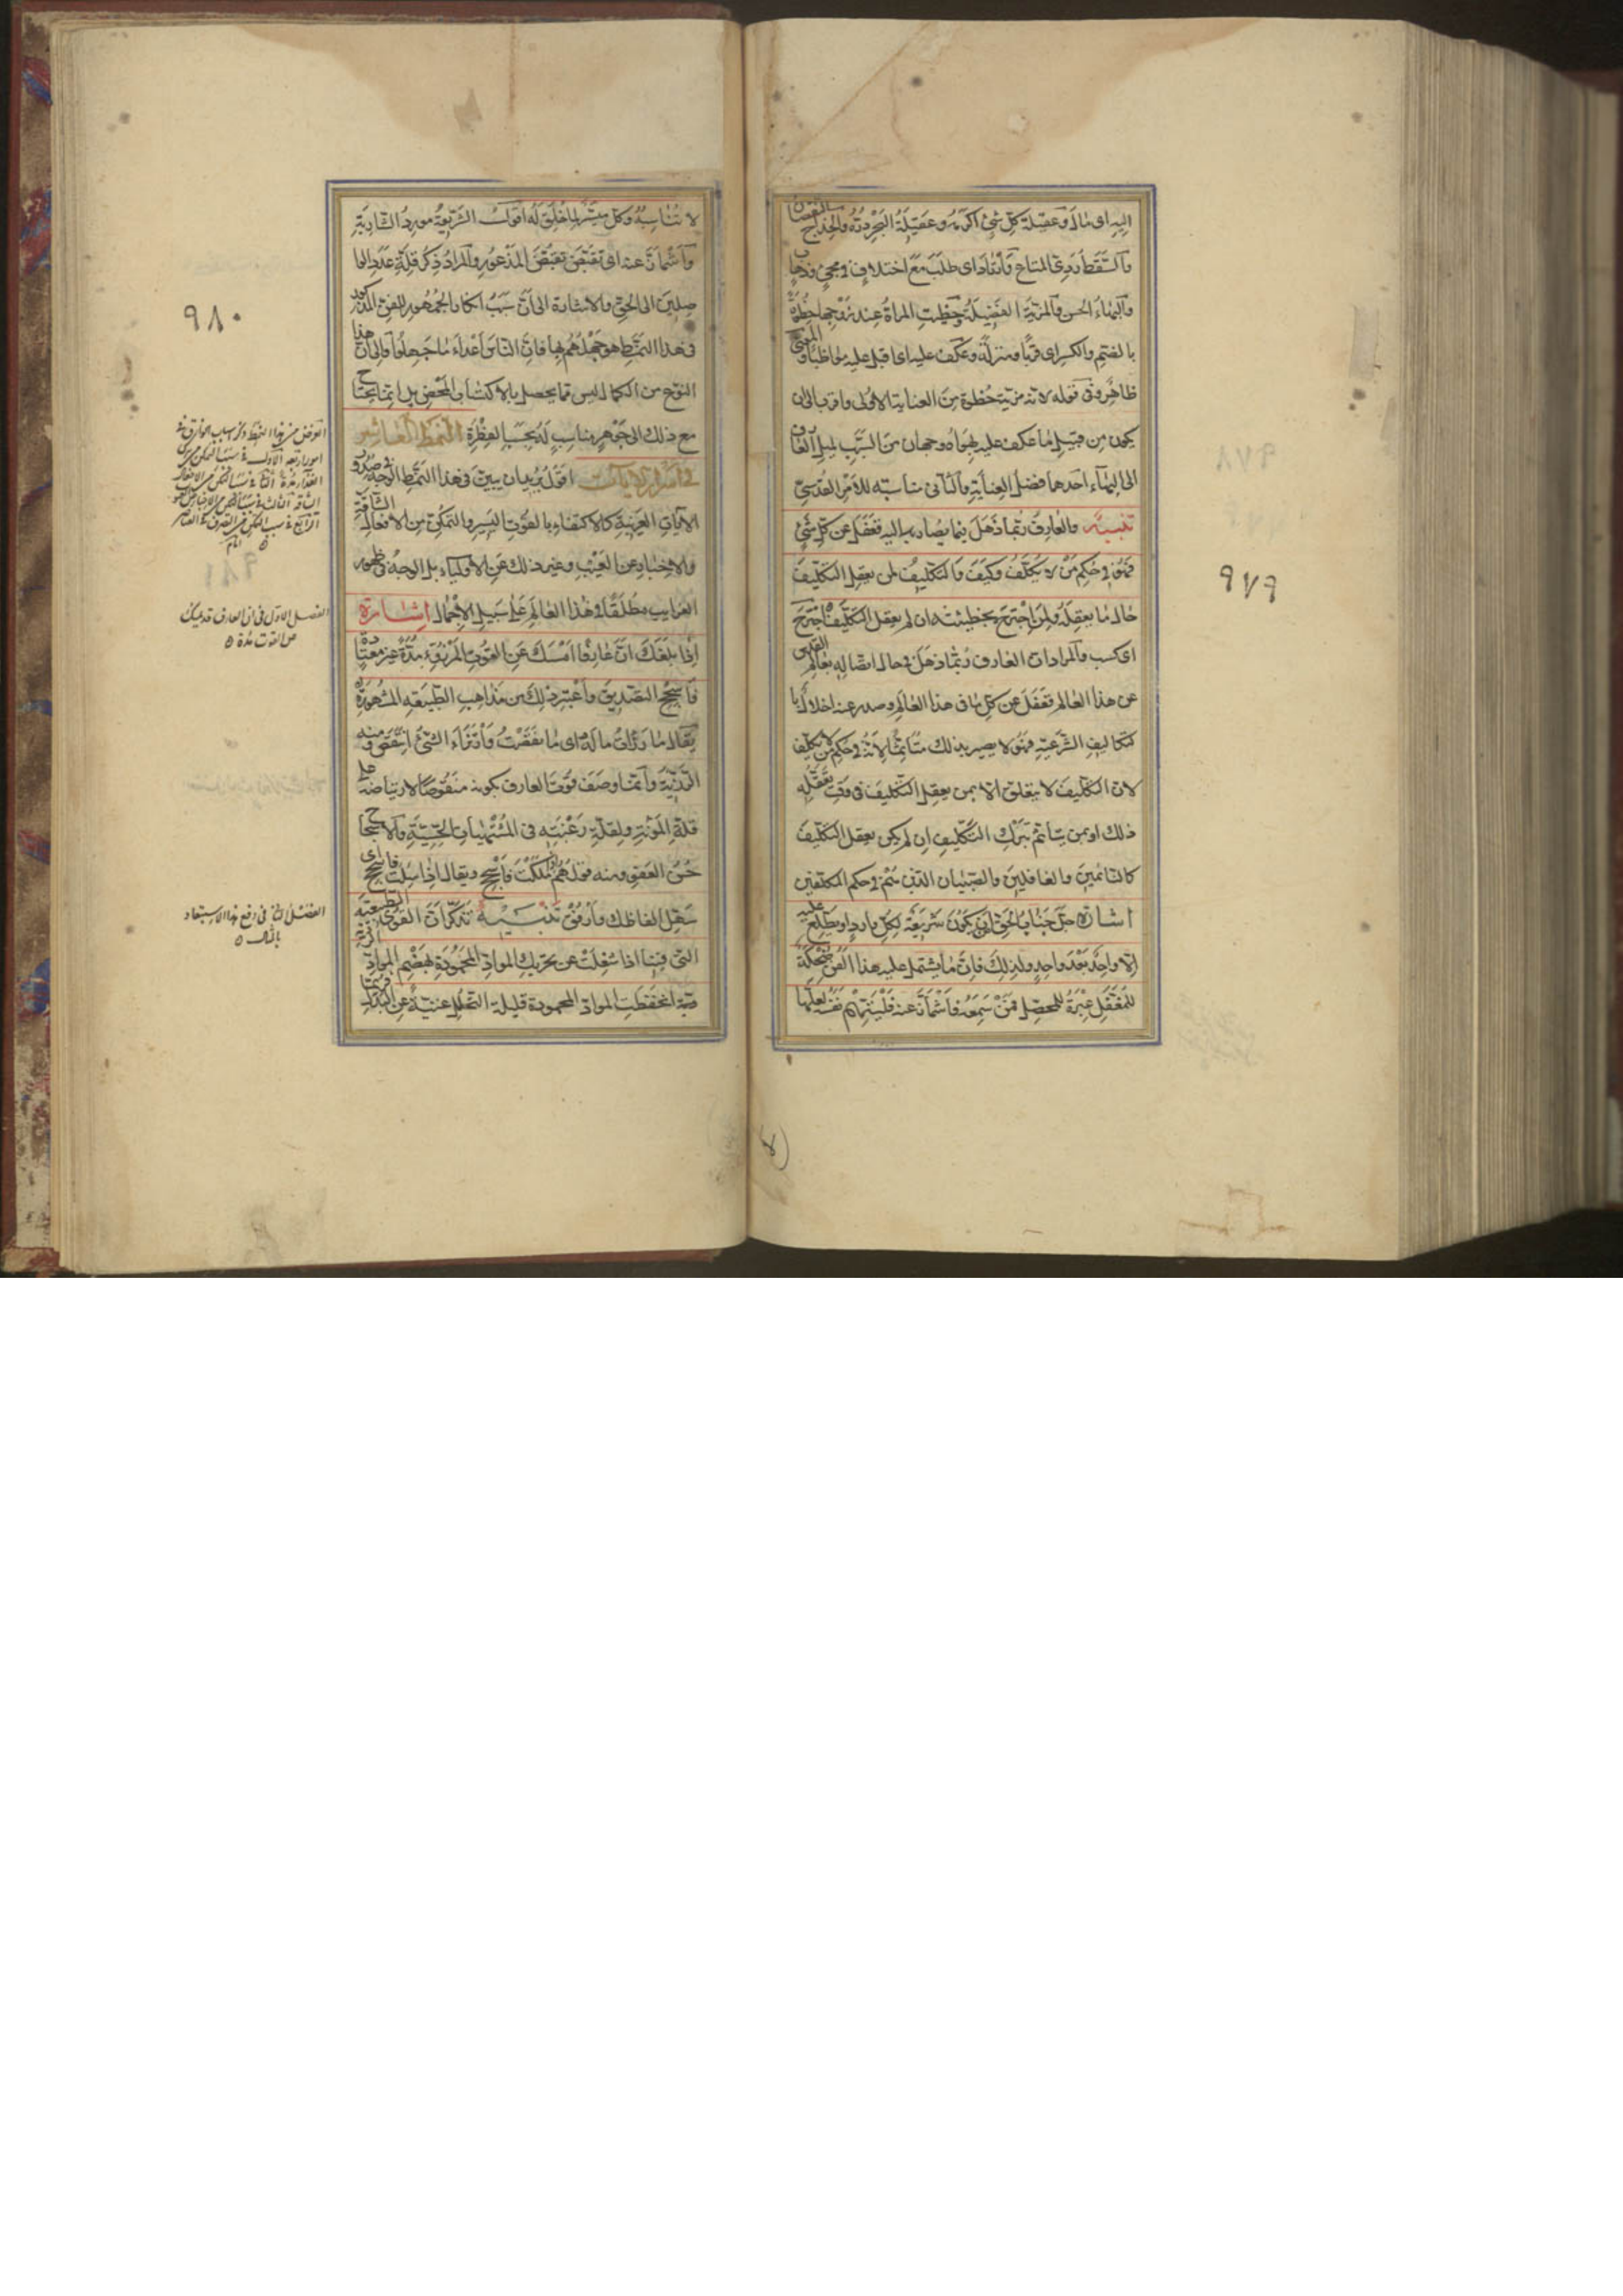 اليه اى مال وعقيلة كل شئ اكرمه وعقيلة البحر دره والخداج النقصان
والسقط ردى المتاع وارتاد اى طلب مع اختلاف فى مجئ وذهاب
والبهاء الحسن والمزية الفضيلة وحظيت المراة عند زوجها حظوة
بالضم والكسر اى قربا ومنزلة وعكف عليه اى اقبل عليه مواظبا والمعنى
ظاهر وفى قوله لانه مزيته حظوة من العناية الاولى واقرب الى ان
يكون من قبيل ما عكف عليه بهواه وجهان من السبب لميل العارف
الى البهاء احدهما فضل العناية والثانى مناسبته للامر القدسى
تنبيه والعارف ربما ذهل فيما يصار به اليه فغفل عن كل شئ
فهو فى حكم من لا يكلف وكيف والتكليف لمن يعقل التكليف
حال ما يعقله ولمن اجترح بخطيئته ان لم يعقل التكليف اجترح
اى كسب والمراد ان العارف ربما ذهل فى حال اتصاله بعالم القدس
عن هذا العالم فغفل عن كل ما فى هذا العالم وصدر عنه اخلال
بالتكاليف الشرعية فهو لا يصير بذلك متاثما لانه فى حكم من لا يكلف
لان التكليف لا يتعلق الا بمن يعقل التكليف فى وقت تعقله
ذلك او بمن يتاثم بترك التكليف ان لم يكن يعقل التكليف
كالنائمين والغافلين والصبيان الذين هم فى حكم المكلفين
اشارة جل جناب الحق ان يكون شريعة لكل وارد او يطلع عليه
الا واحد بعد واحد ولذلك فان ما يشتمل عليه هذا الفن ضحكة
للمغفل عبرة للمحصل فمن سمعه فاشمأز عنه فليتهم نفسه لعلها
٩٧٩
لا تناسبه وكل ميسر لما خلق له اقول الشريعة مورد الشاربة
واشمأز عنه اى تقبض تقبض المذعور والمراد ذكر قلة عدد الوا
صلين الى الحق والاشارة الى ان سبب انكار الجمهور للفن المذكور
فى هذا النمط هو جهلهم بها فان الناس اعداء ما جهلوا والى ان هذا
النوع من الكمال ليس مما يحصل بالاكتساب المحض بل انما يحتاج
مع ذلك الى جوهر مناسب له بحسب الفطرة النمط العاشر
فى اسرار الايات اقول يريد ان يبين فى هذا النمط الوجه فى صدور
الايات الغريبة كالاكتفاء بالقوت اليسير والتمكن من الافعال الشاقة
والاخبار عن الغيب وغير ذلك عن الاولياء بل الوجه فى ظهور
الغرايب مطلقا فى هذا العالم على سبيل الاجمال اشارة
اذا بلغك ان عارفا امسك عن القوت المرزوء مدة غير معتادة
فاسجح بالتصديق واعتبر ذلك من مذاهب الطبيعة المشهورة
يقال ما رزأت ماله اى ما نقصت وارتزأ الشئ انتقص ومنه
الرزيئة وانما وصف قوت العارف بكونه منقوصا لارتياضه على
قلة المؤنة ولقلة رغبته فى المشتهيات الحسية والاسجاح
حسن العفو ومنه قولهم اذا ملكت فاسجح ويقال اذا سئلت فاسجح اى
سهل الفاظك وارفق تنبيه تذكر ان القوى الطبيعية
التى فينا اذا شغلت عن تحريك المواد المحمودة بهضم المواد الردية
انحفظت المواد المحمودة قليلة التحلل غنية عن البدل فربما
٩٨٠
الغرض من هذا النمط ذكر اسباب خوارق
الفصل الاول فى ان العارف قد يمسك
عن القوت مدة
الفصل الثانى فى رفع هذا الاستبعاد